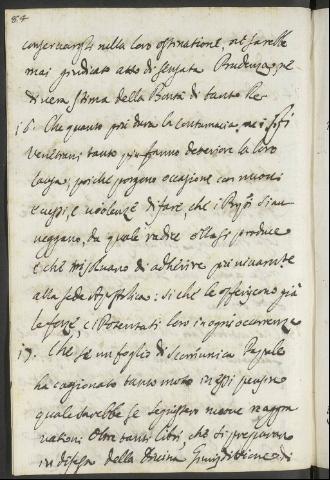 84
conservarsi nella loro ostinatione, nè sarebbe
mai giudicato atto di sensata Prudenza, nè
di vera stima della Bontà di tanto Re
16. Che quanto più dura la contumacia, ne i
Venetiani tanto più fanno deteriore la loro
causa, poiche porgono occasione con nuovi
e violenze di fare, che i
veggano, da quale radice si produce
e che di adherire più vivamente
alla sede Apostolica: si che le offeriscono già
le forze, i Potentati loro in ogni occorrenza
17. Che se un foglio di Scomunica Papale
ha cagionato tanto moto in essi pensino
quale sarebbe se seguissero nuove
oltre tanti libri, che si preparano
in difesa della Divina Giurisditione di